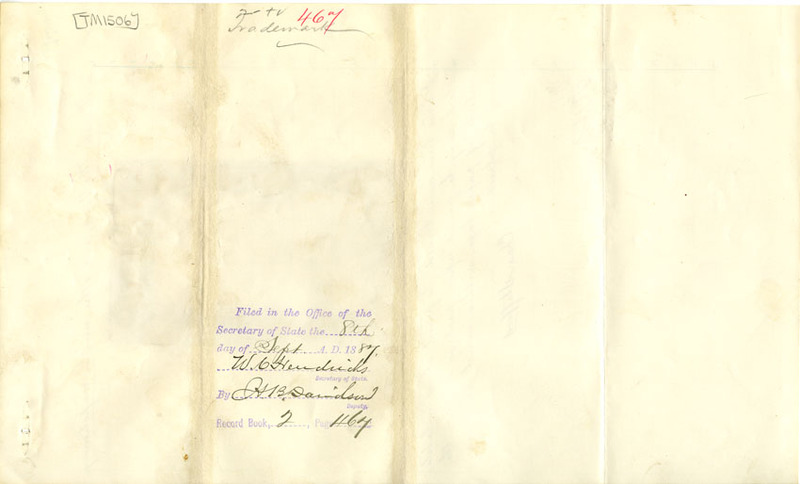 [TM1506]
467
Trademark
Filed in the Office of the
Secretary of State the 8th
day of Sept A. D. 1887.
W. C. Hendricks
Secretary of State.
By H. B. Davidson
Deputy.
Record Book, 2, Page 467